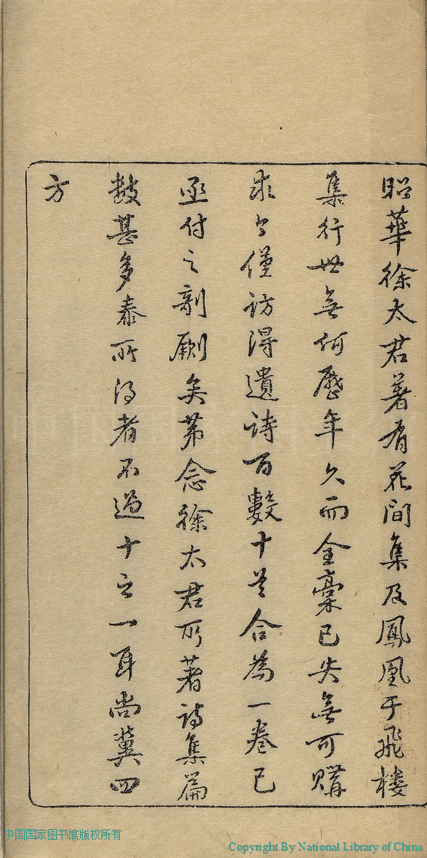 昭華徐太君著有花間集及鳳凰于飛樓
集行世無何歷年久而全稾已失無可購
求今僅訪得遺詩百數十首合為一卷已
亟付之剞劂矣第念徐太君所著詩集篇
數甚多泰所得者不過十之一耳尚冀四
方
中国国家图书馆版权所有
Copyright By National Library of China